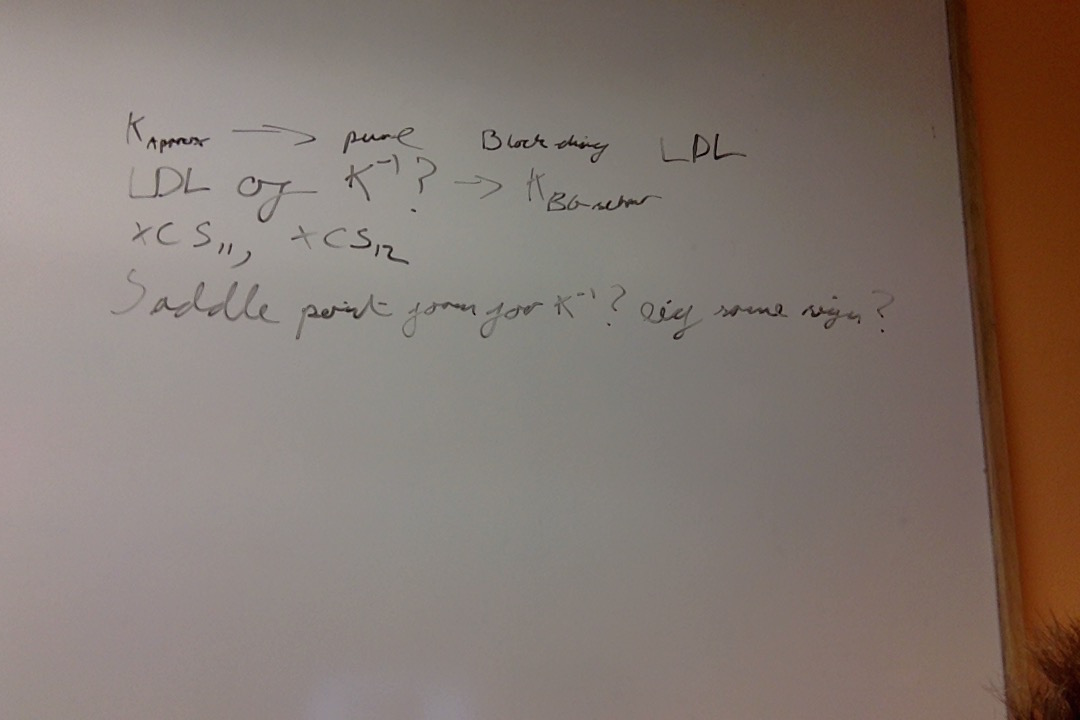 K_Approx → pure Block diag LDL
LDL of K⁻¹? → K_BG-schur
xCS₁₁, xCS₁₂
Saddle point form for K⁻¹? eig same sign?